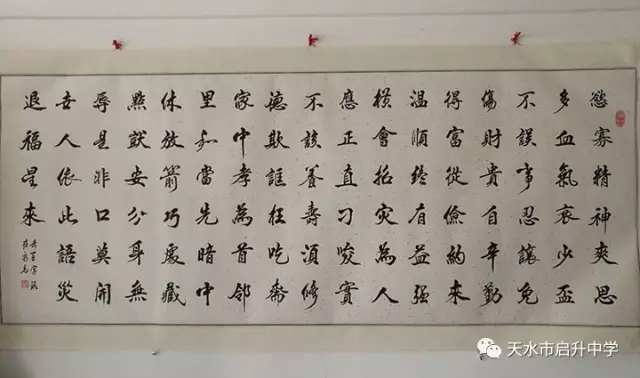 慾寡精神爽思
多血氣衰少盃
不誤事忍讓免
傷財貴自辛勤
得富從儉約來
温順終有益强
橫會招灾為人
應正直刁唆實
不該養壽須修
德欺誑枉吃齋
家中孝為首鄰
里和當先暗中
休放箭巧處藏
點獃安分身無
辱是非口莫開
世人依此語災
退福星來
百字銘
天水市启升中学